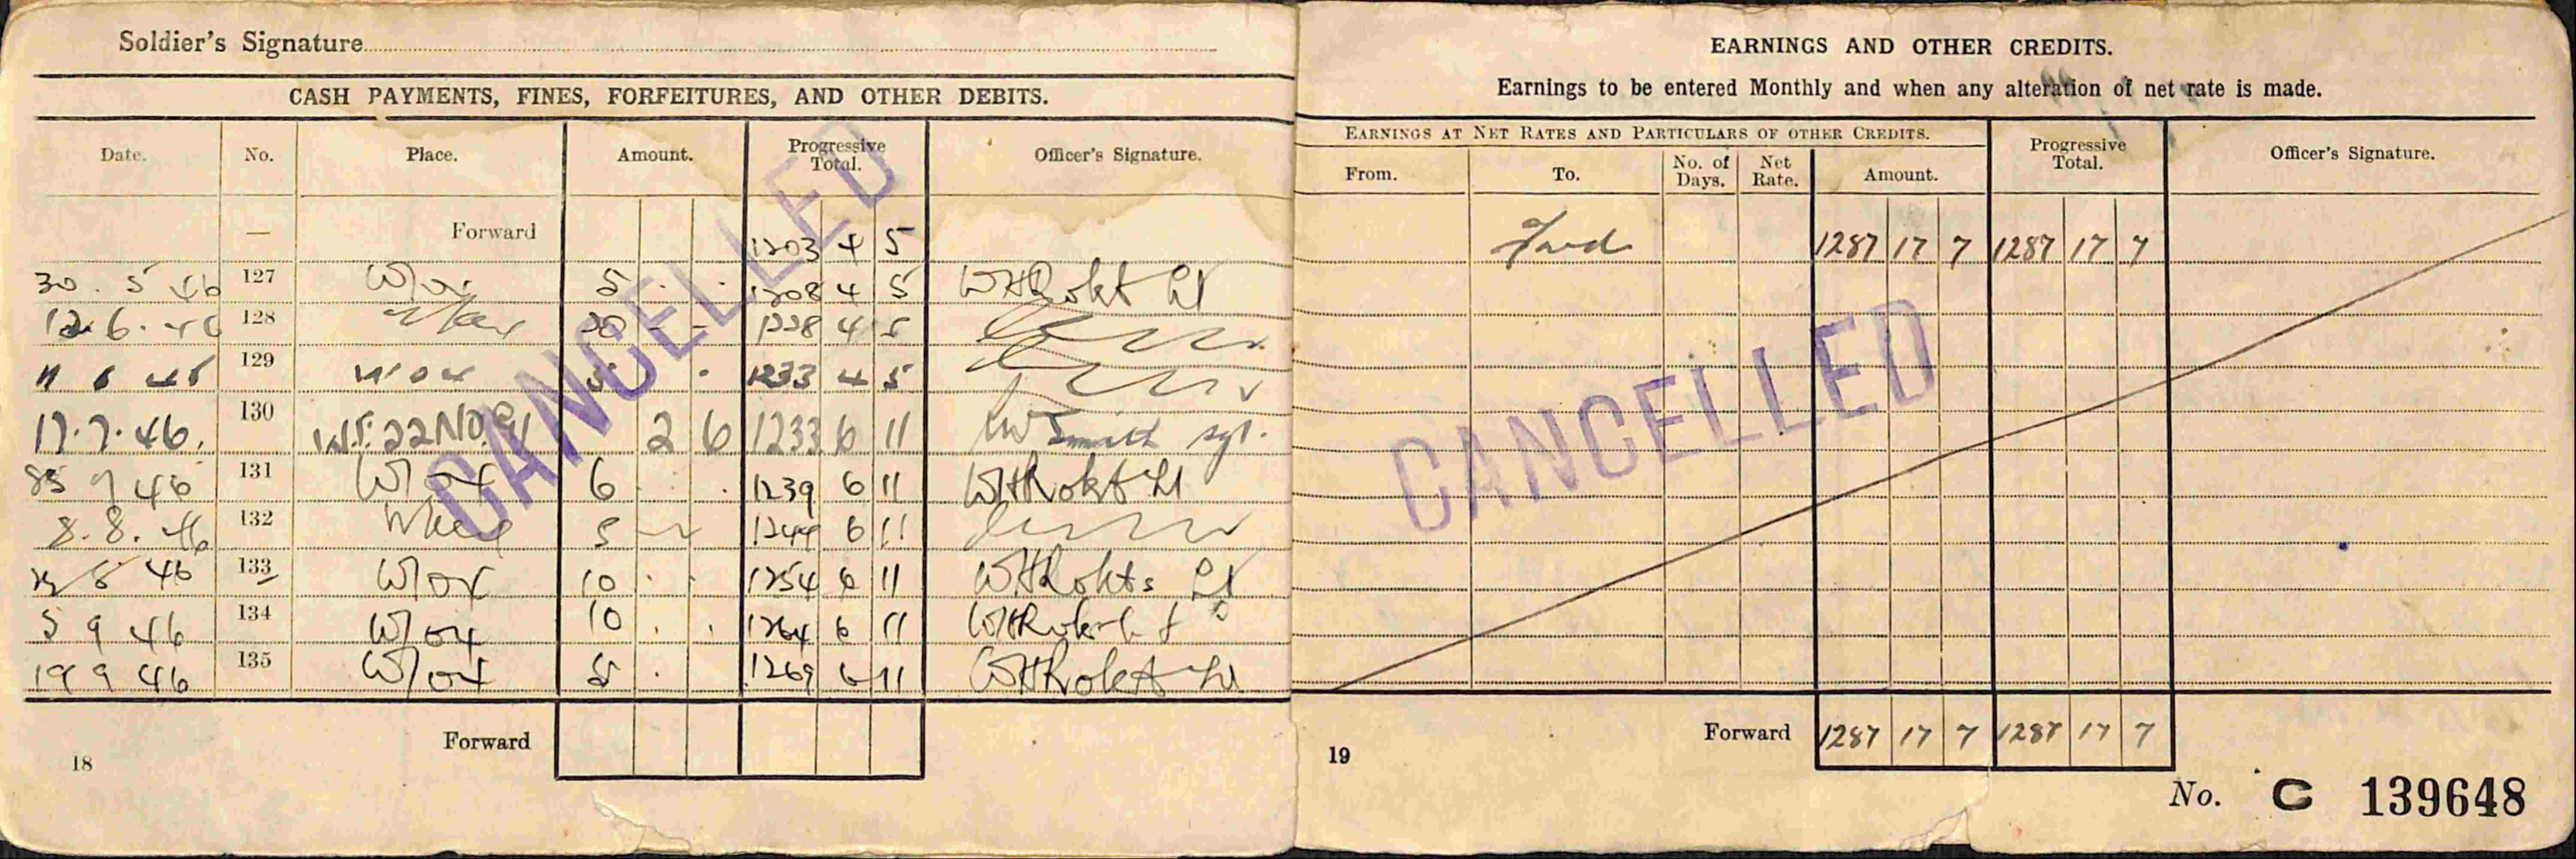 Soldier's Signature
CASH PAYMENTS, FINES, FORFEITURES, AND OTHER DEBITS.
Date. No. Place. Amount. Progressive Total. Officer's Signature.
— Forward 1203 4 5
30 . 5 46 127 5 . . 1208 4 5
12 . 6 . 46 128 20 - - 1228 4 5
129 5 . 1233 4 5
17 . 7 . 46 . 130 2 6 1233 6 11 Smith sgt.
9 46 131 W/or 6 . . 1239 6 11
8 . 8 . 46 132 5 1244 6 11
46 133 W/or 10 . . 1254 6 11
5 9 46 134 W/or 10 . . 1264 6 11
19 9 46 135 W/or 5 . 1269 6 11
Forward
18
CANCELLED
EARNINGS AND OTHER CREDITS.
Earnings to be entered Monthly and when any alteration of net rate is made.
EARNINGS AT NET RATES AND PARTICULARS OF OTHER CREDITS.
From. To. No. of Days. Net Rate. Amount. Progressive Total. Officer's Signature.
Fwd 1287 17 7 1287 17 7
CANCELLED
Forward 1287 17 7 1287 17 7
19
No. C 139648